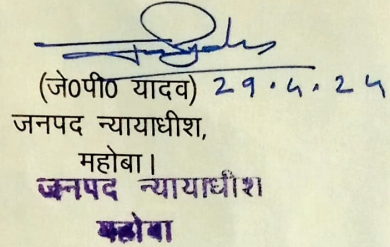 (जे0पी0 यादव) 29.4.24
जनपद न्यायाधीश,
महोबा।
जनपद न्यायाधीश
महोबा